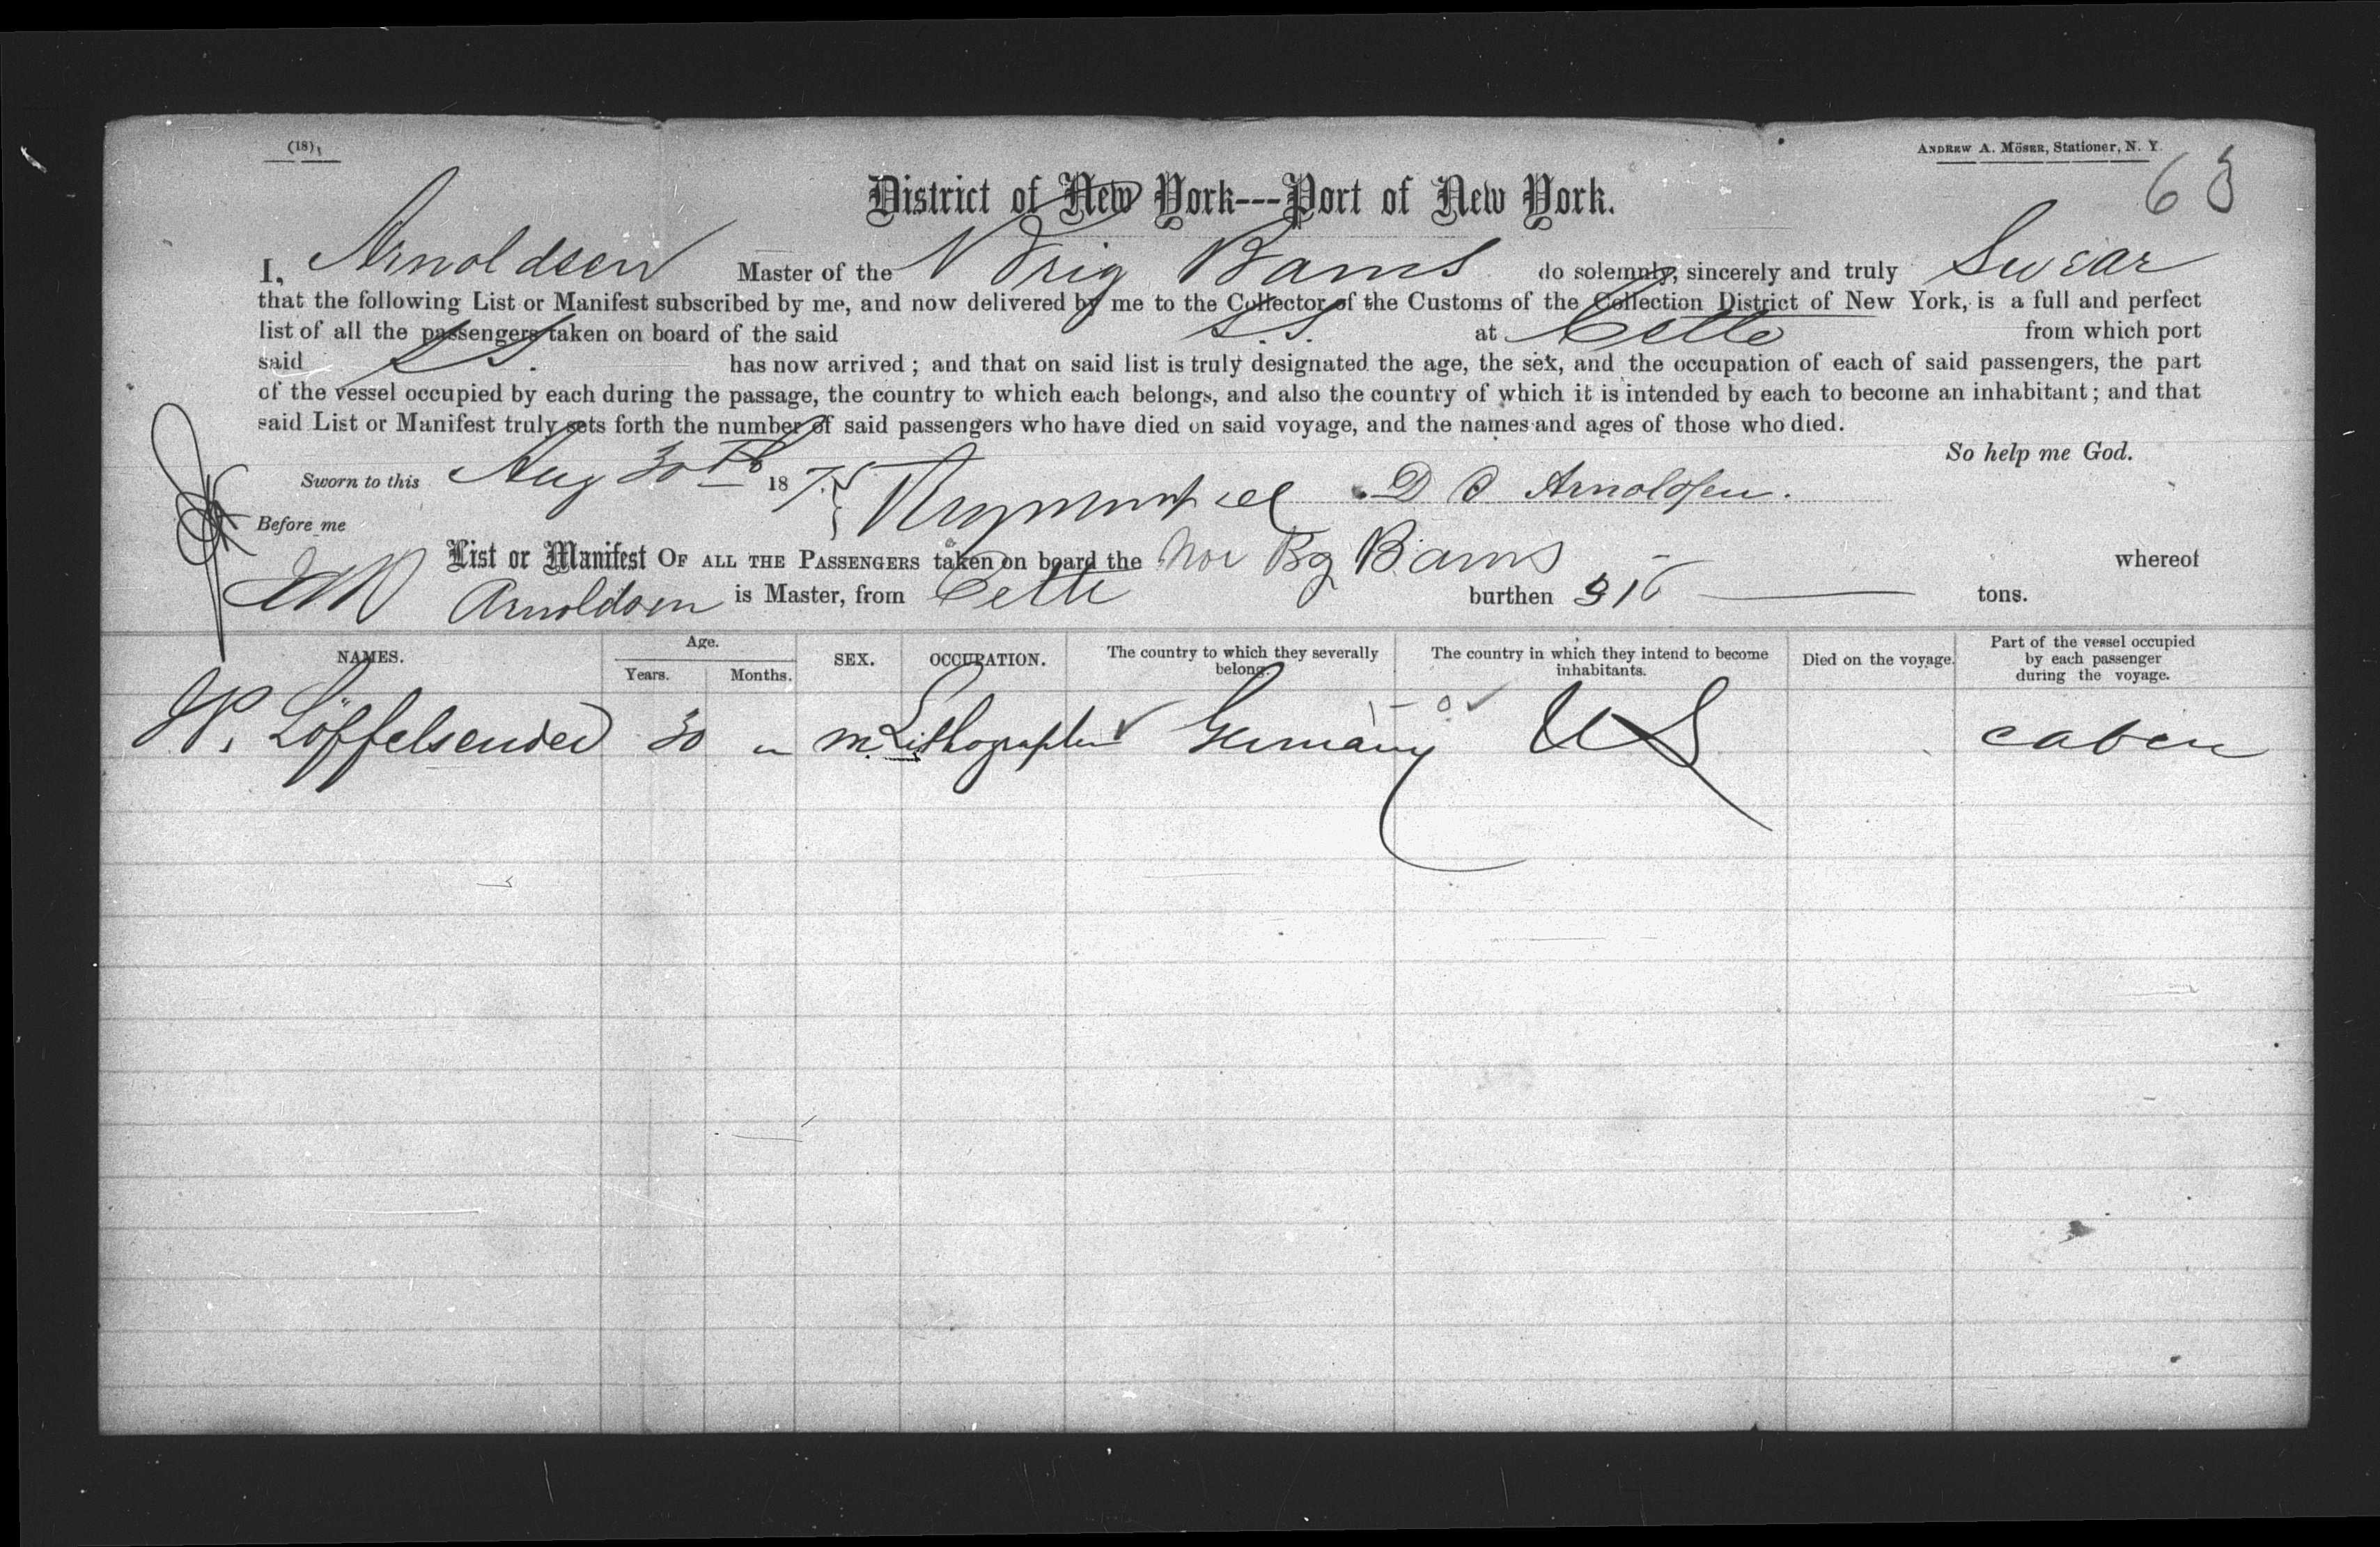 (18)
ANDREW A. MÖSER, Stationer, N. Y.
District of New York---Port of New York.
I, Arnoldsen Master of the N Brig Bams do solemnly, sincerely and truly Swear
that the following List or Manifest subscribed by me, and now delivered by me to the Collector of the Customs of the Collection District of New York, is a full and perfect
list of all the passengers taken on board of the said at Cette from which port
said has now arrived; and that on said list is truly designated the age, the sex, and the occupation of each of said passengers, the part
of the vessel occupied by each during the passage, the country to which each belongs, and also the country of which it is intended by each to become an inhabitant; and that
said List or Manifest truly sets forth the number of said passengers who have died on said voyage, and the names and ages of those who died.
So help me God.
Sworn to this Aug 30th 187 D Arnoldsen.
Before me
List or Manifest OF ALL THE PASSENGERS taken on board the Nor Bg Bams whereof
Arnoldsen is Master, from Cette burthen tons.
NAMES. Age. Years. Months. SEX. OCCUPATION. The country to which they severally belong. The country in which they intend to become inhabitants. Died on the voyage. Part of the vessel occupied by each passenger during the voyage.
Löffelsender 30 m Lithographer Germany US cabin